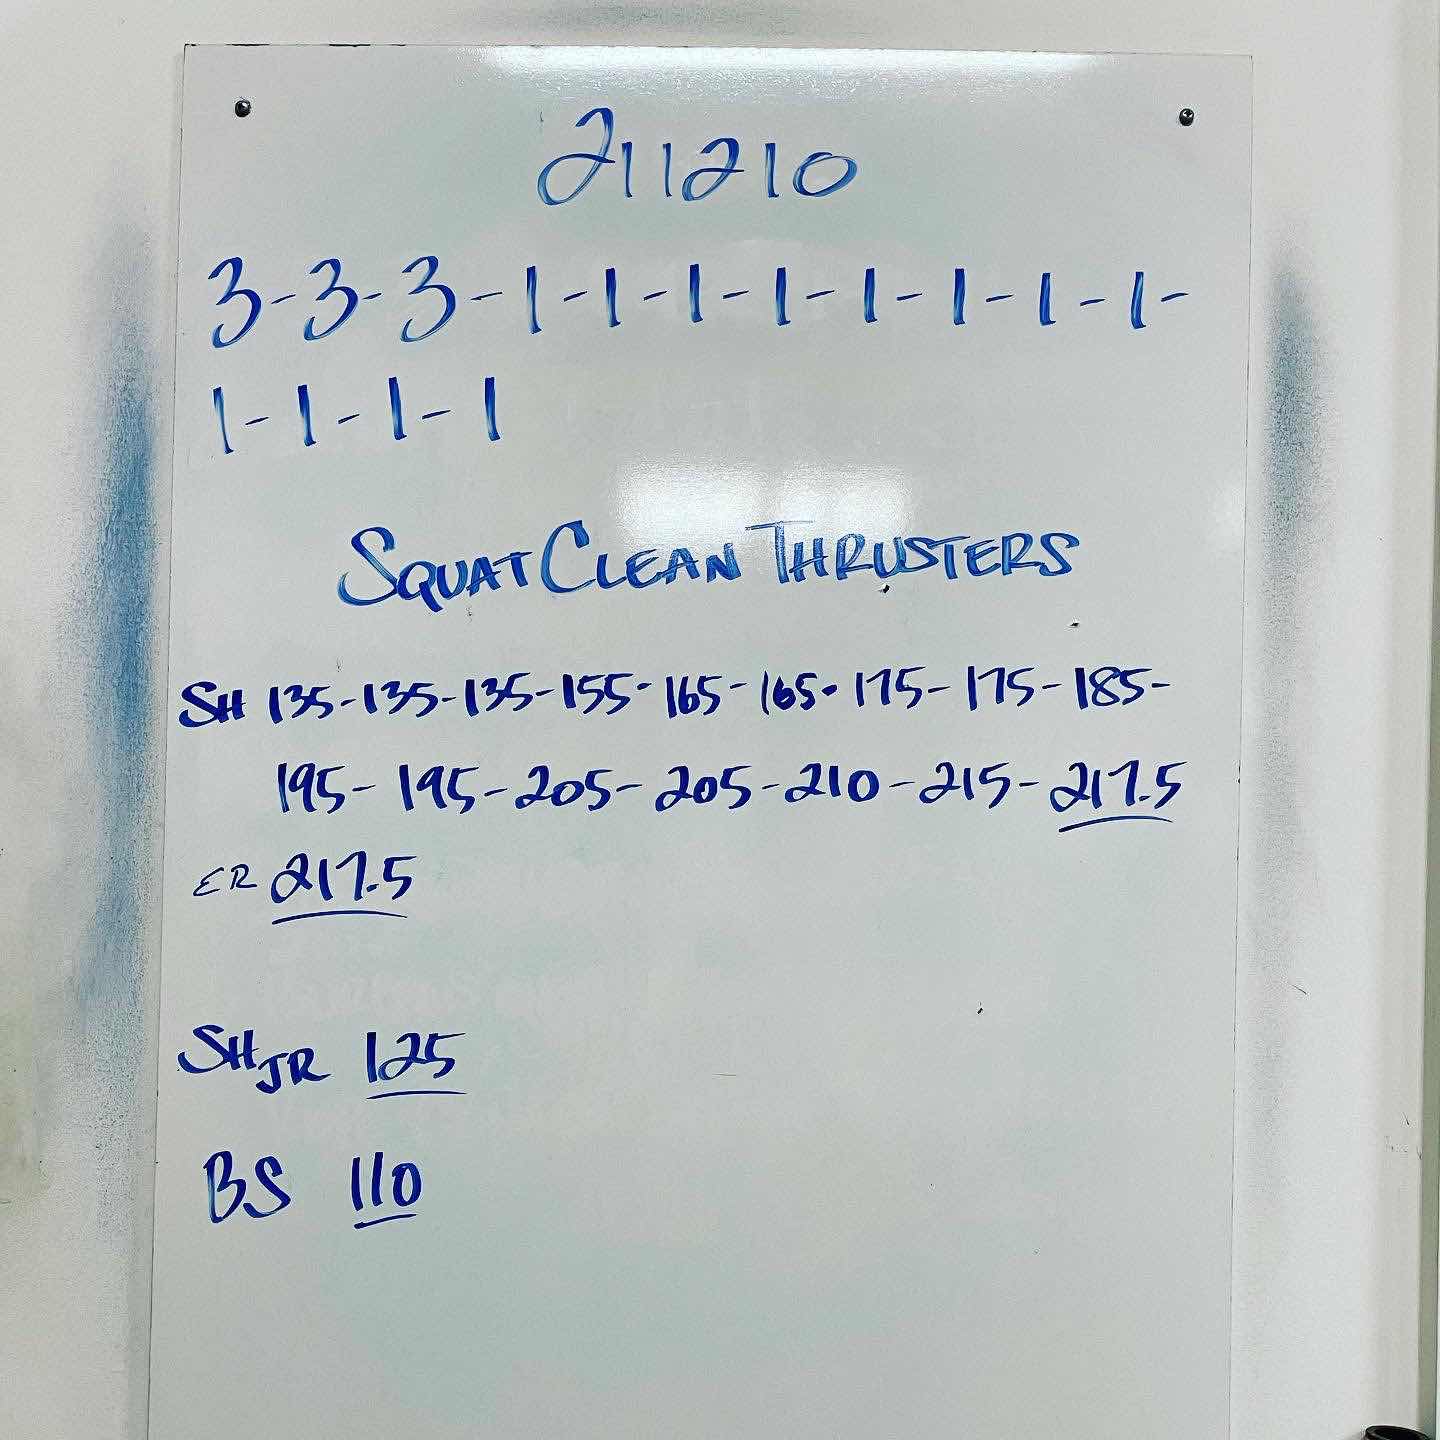 211210
3-3-3-1-1-1-1-1-1-1-1-
1-1-1-1
SQUAT CLEAN THRUSTERS
SH 135-135-135-155-165-165-175-175-185-
195-195-205-205-210-215-217.5
ER 217.5
SH JR 125
BS 110